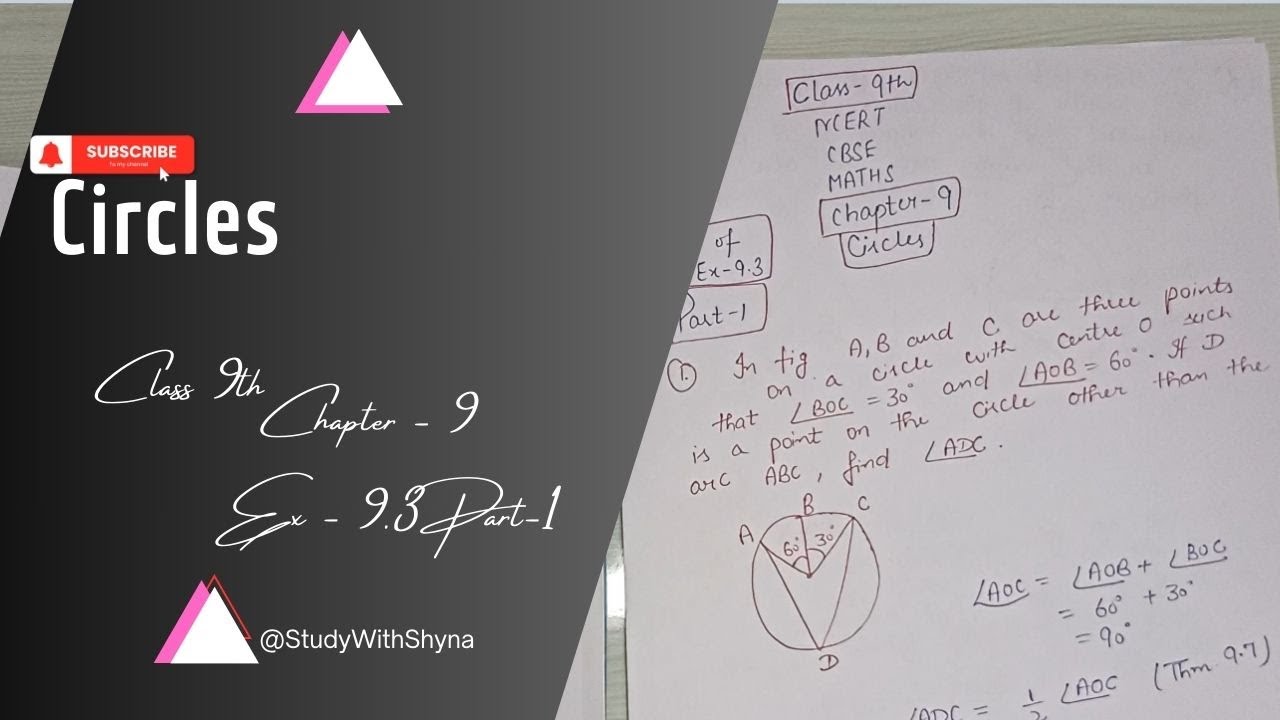 SUBSCRIBE
To my channel
Circles
Class 9th
Chapter - 9
Ex - 9.3 Part-1
@StudyWithShyna
Class- 9th
NCERT
CBSE
MATHS
Chapter-9
Circles
of
Ex-9.3
Part-1
1. In fig A, B and C are three points
on a circle with centre O such
that ∠BOC = 30° and ∠AOB = 60°. If D
is a point on the circle other than the
arc ABC, find ∠ADC.
B
C
A
60° 30°
D
∠AOC = ∠AOB + ∠BOC
= 60° + 30°
= 90°
∠ADC = 1/2 ∠AOC (Thm 9.7)